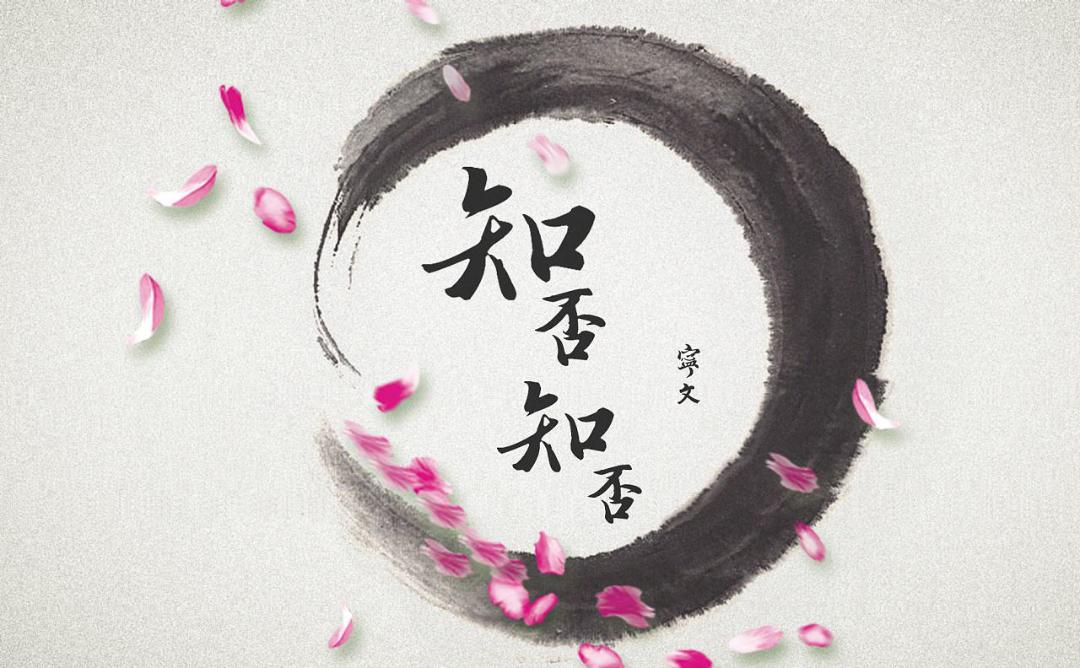 知否
知否
寧文